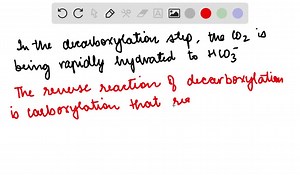 In the decarboxylation step, the CO2 is
being rapidly hydrated to HCO3-
The reverse reaction of decarboxylation
is carboxylation that re